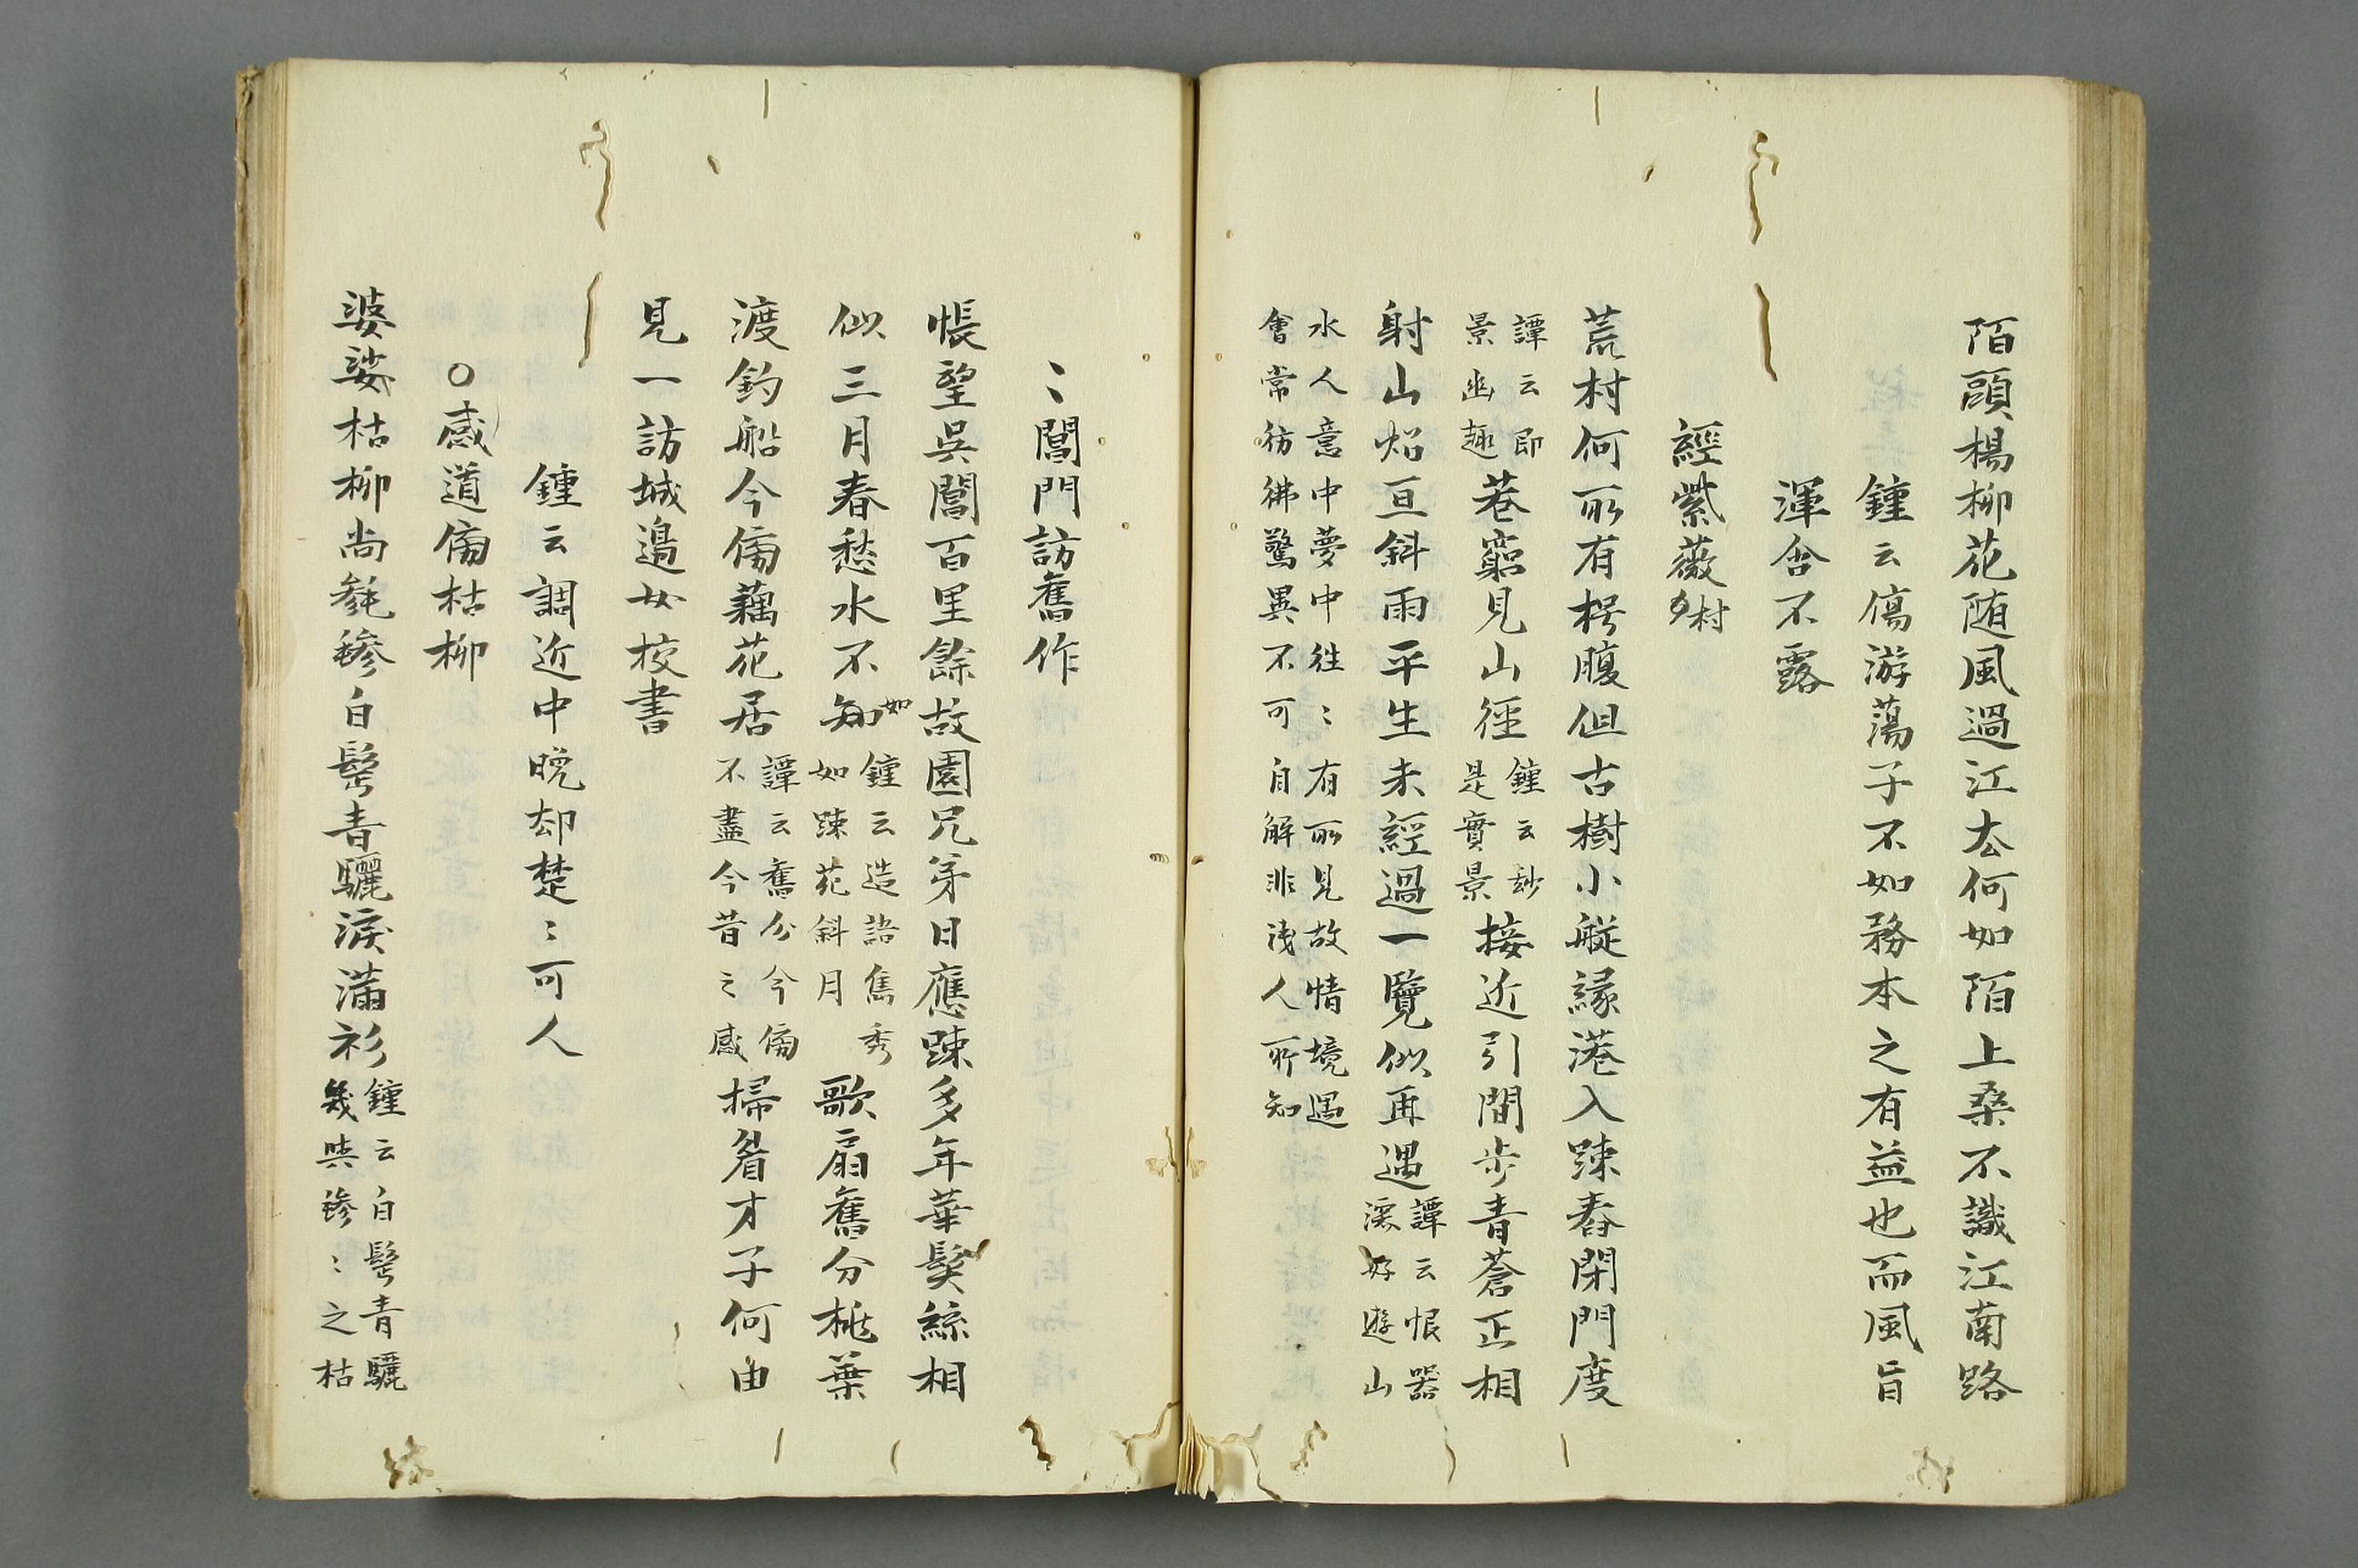 陌頭楊柳花随風過江去何如陌上桑不識江南路
鍾云傷游蕩子不如務本之有益也而風旨
渾含不露
經紫薇村
荒村何所有枵腹但古樹小艇緣港入踈舂閉門度
譚云即
景幽趣
巷窮見山徑
鍾云玅
是實景
接近引閒步青蒼正相
射山炤亘斜雨平生未經過一覽似再遇
譚云恨器
深好遊山
水人意中夢中往〻有所見故情境遇
會常彷彿驚異不可自解非淺人所知
〻閶門訪舊作
悵望吳閶百里餘故園兄弟日應踈多年華髮絲相
似三月春愁水不知
如
鍾云造語雋秀
如踈花斜月
歌扇舊分桃葉
渡釣船今傍藕花居
譚云舊分今傍
不盡今昔之感
掃眉才子何由
見一訪城邊女校書
鍾云調近中晚却楚〻可人
○感道傍枯柳
婆娑枯柳尚毿毿白髩青驪淚滿衫
鍾云白髩青驪
幾與毿〻之枯